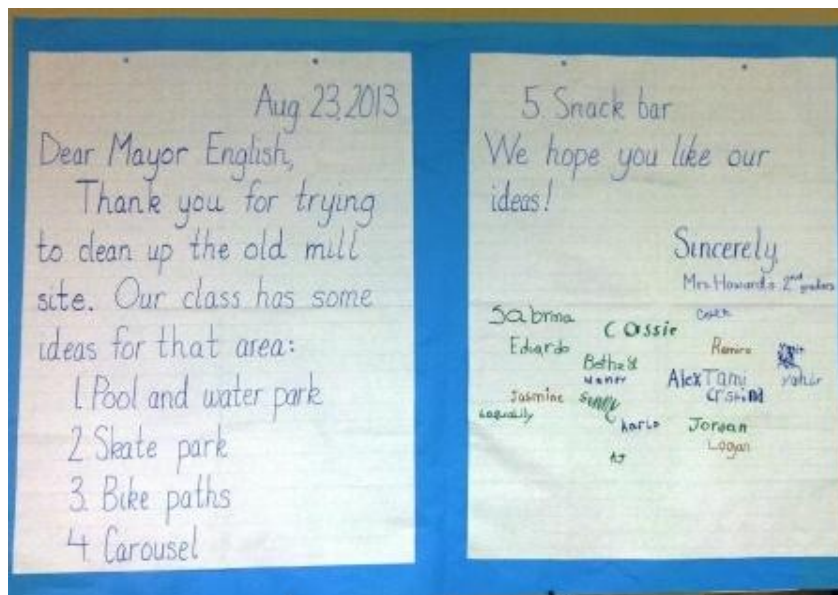 Aug 23, 2013
Dear Mayor English,
Thank you for trying
to clean up the old mill
site. Our class has some
ideas for that area:
1. Pool and water park
2. Skate park
3. Bike paths
4. Carousel
5. Snack bar
We hope you like our
ideas!
Sincerely,
Mrs. Howard's 2nd graders
Sabrina
Cassie
Eduardo
Ramiro
Alex Tami
Jasmine
Karla Jordan
Logan
AJ